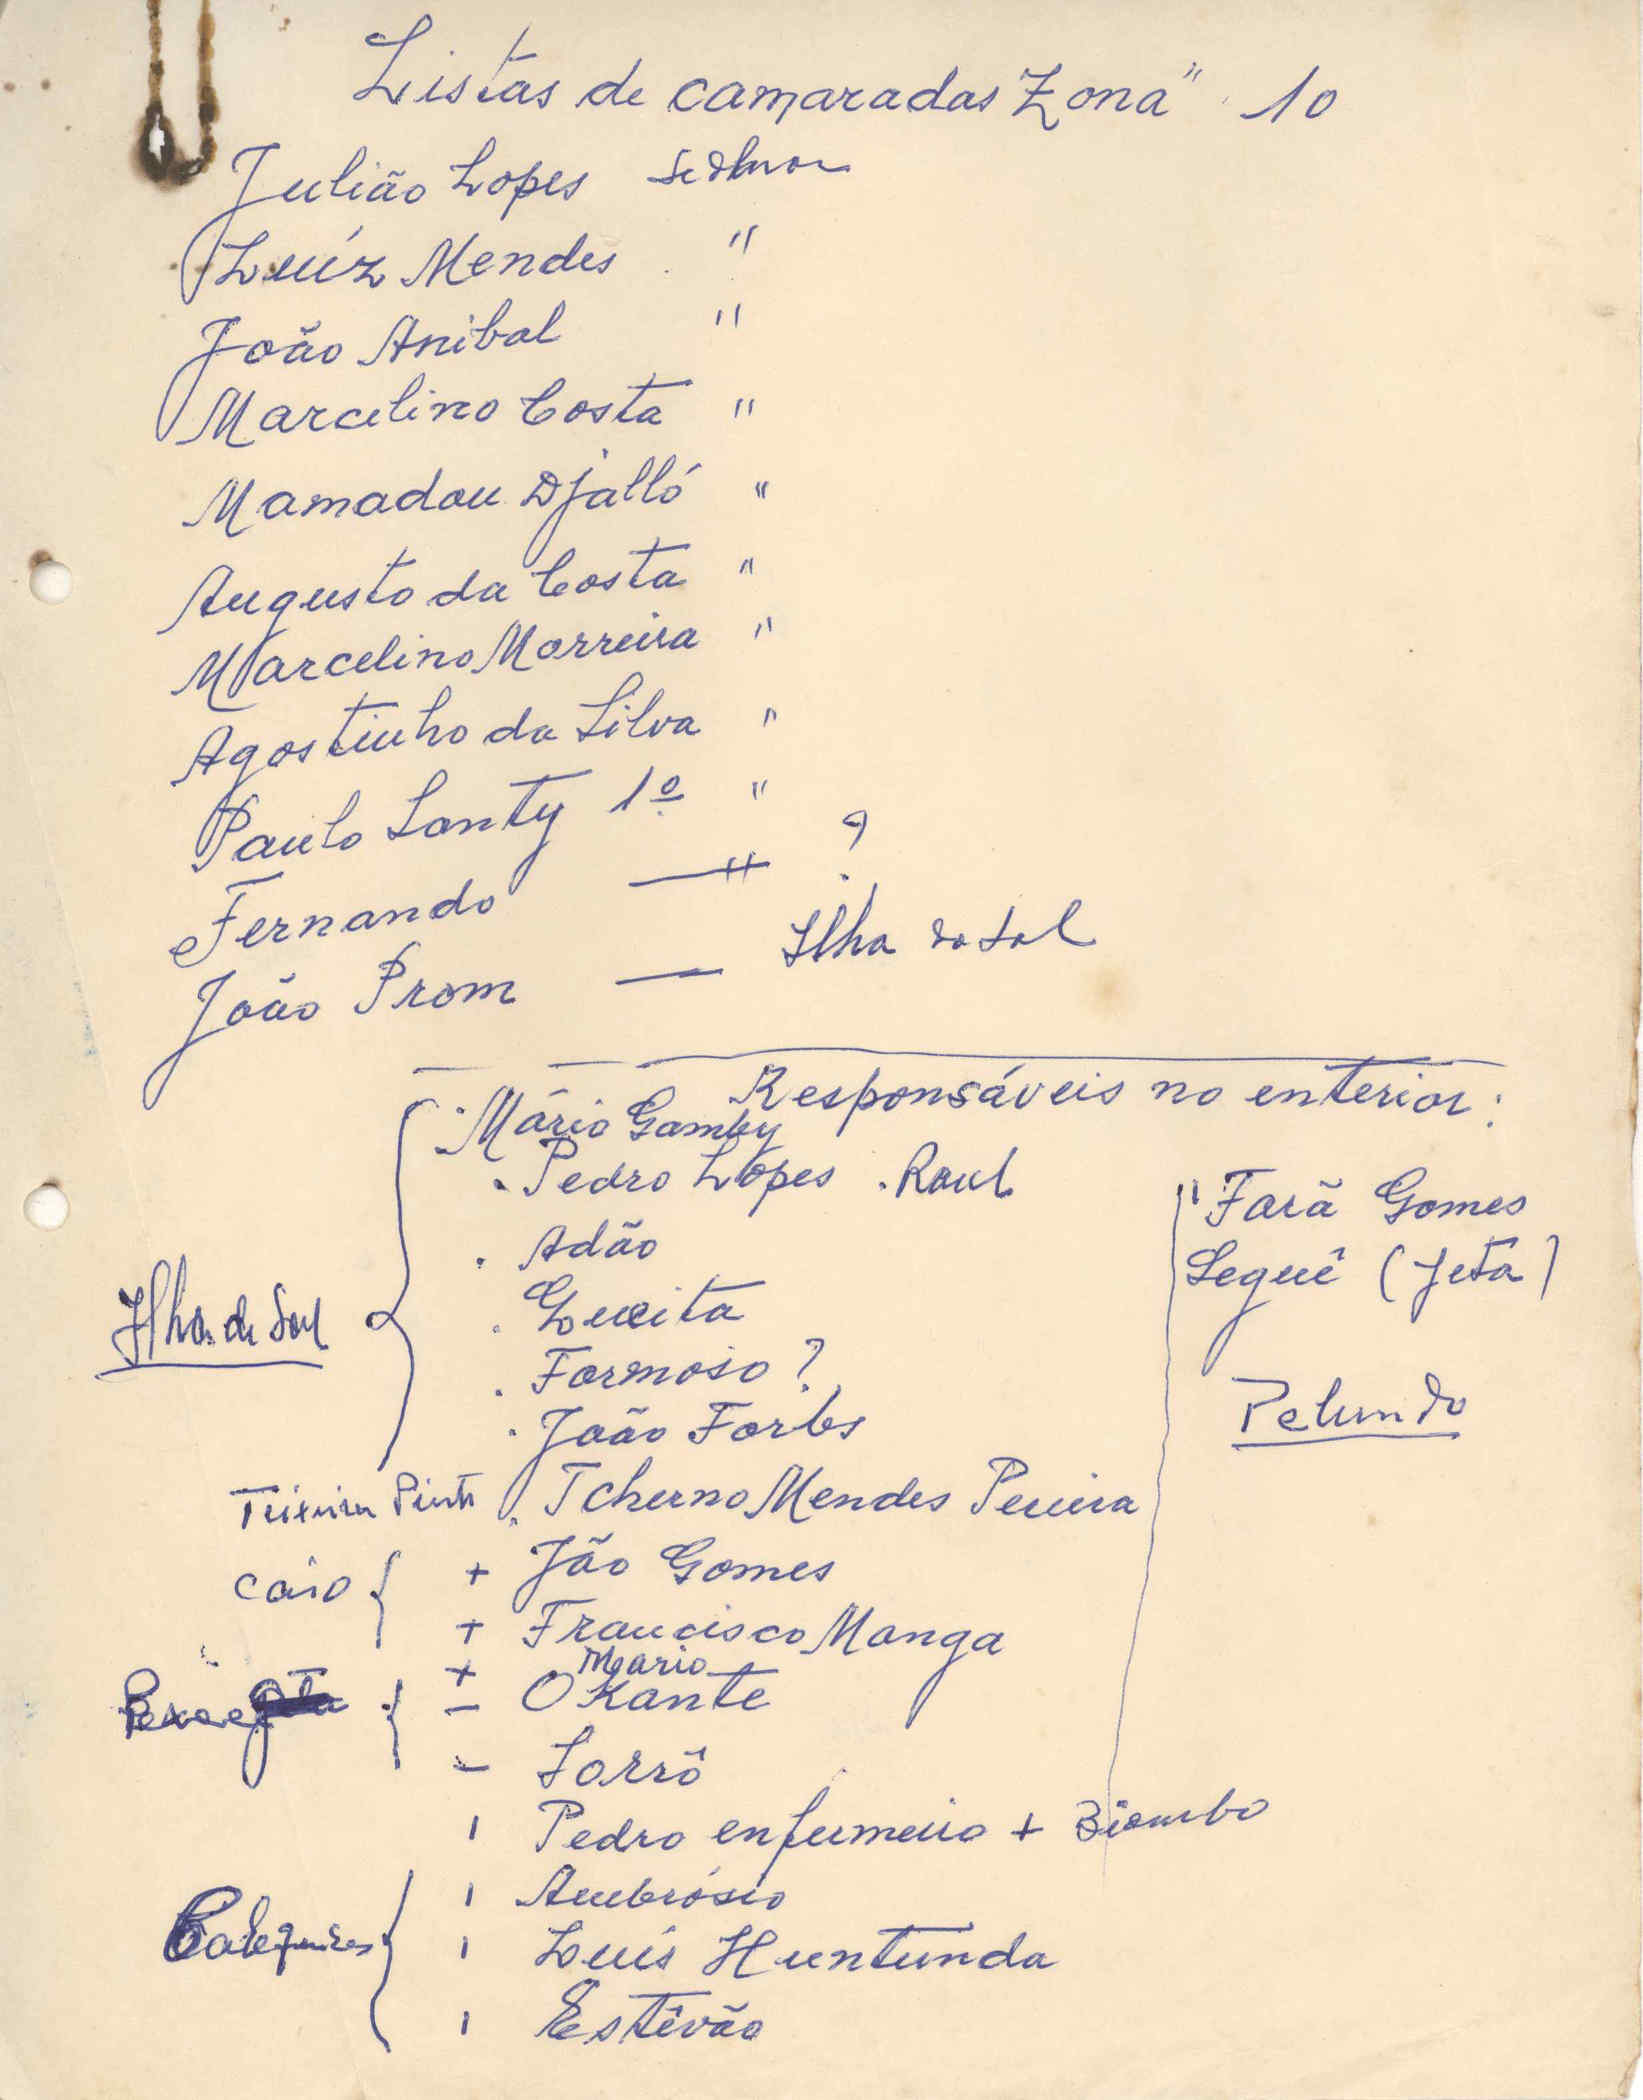 Listas de camaradas Zona" 10
Julião Lopes
Luíz Mendes "
João Anibal "
Marcelino Costa "
Mamadou Djalló "
Augusto da Costa "
Marcelino Morreira "
Agostinho da Silva "
Paulo Santy 1º "
Fernando — " ?
João Prom — Ilha do Sol
Responsáveis no enterior:
Mário Gamby
. Pedro Lopes . Raul
. Adão
. Formoso ?
. João Forbs
Ilha de Sol
Teixeira Pinto . Tcherno Mendes Pereira
Caio { + Jão Gomes
+ Francisco Manga
+ Mario
- O Kante
- Sorrô
Pedro enfermeiro + Biombo
Ambrósio
Luís Huntunda
Estêvão
" Farã Gomes
Seguê (Jeta)
Pelundo